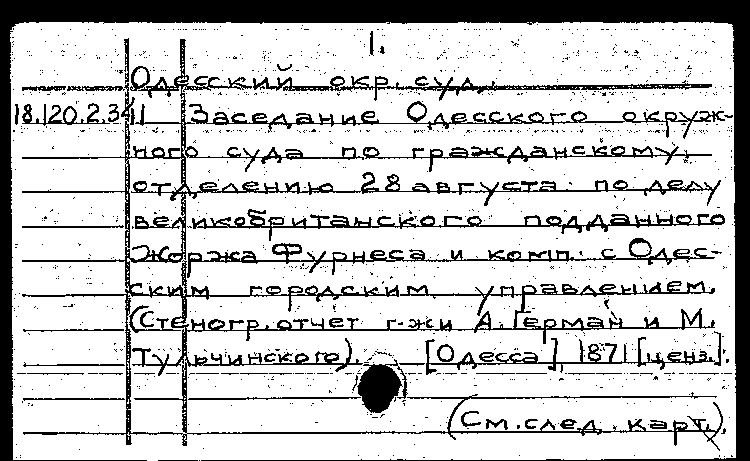 1.
Одесский окр. суд.
18.120.2.341 Заседание Одесского окруж-
ного суда по гражданскому
отделению 28 августа по делу
великобританского подданного
Жоржа Фурнеса и комп. с Одес-
ским городским управлением.
(Стеногр. отчет г-жи А. Герман и М.
Тульчинского). [Одесса], 1871 [ценз.].
(См. след. карт.).